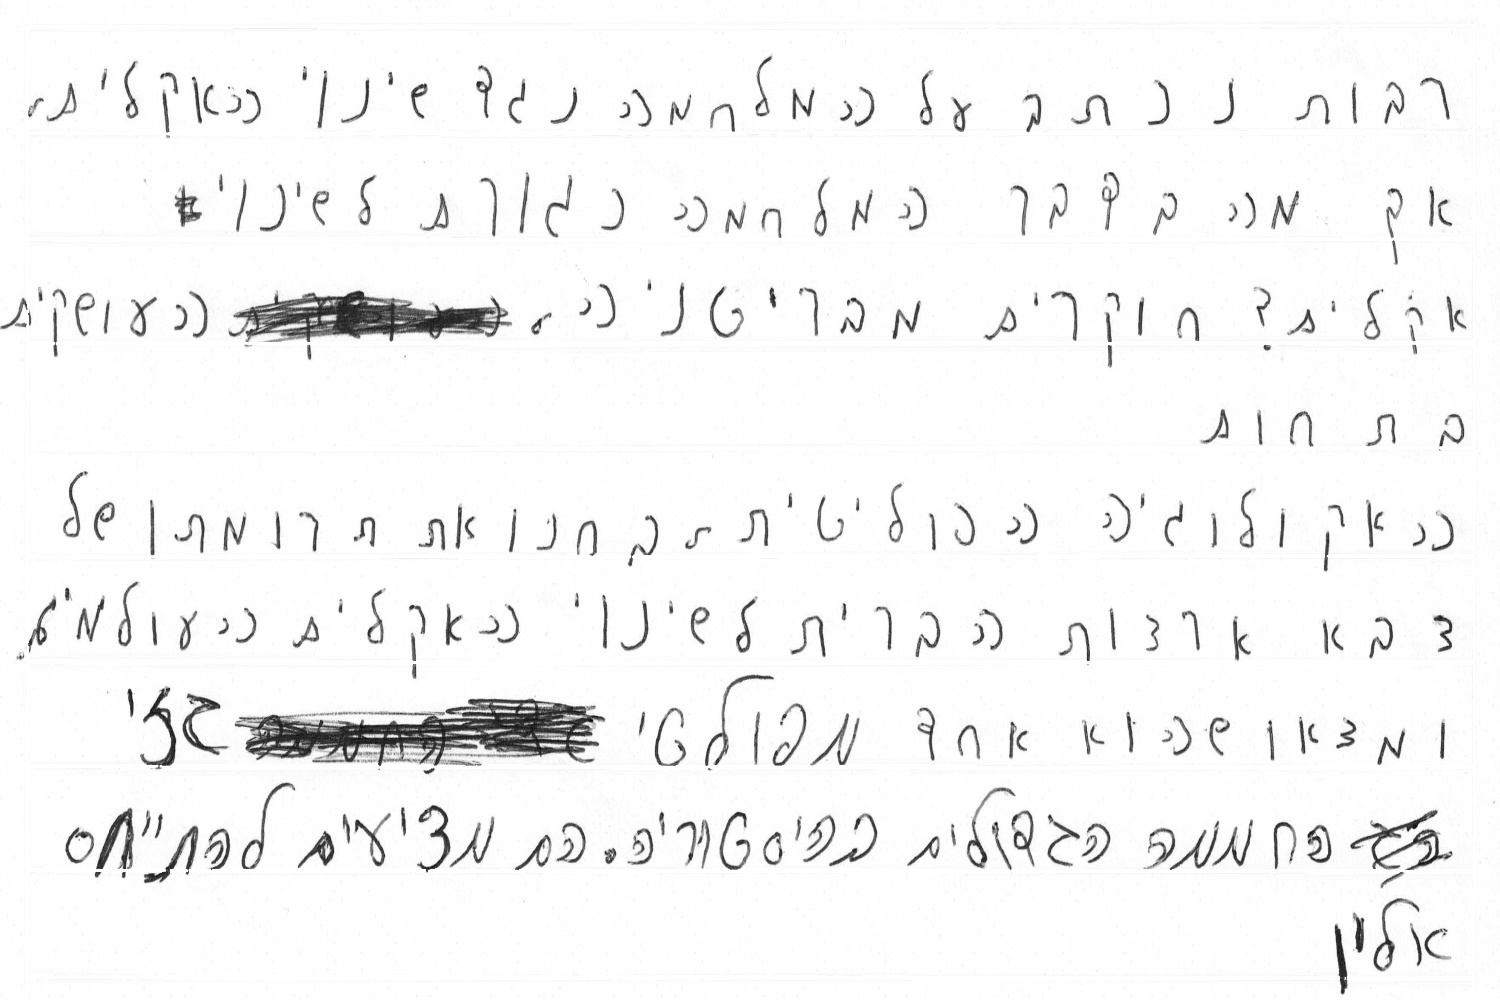 רבות נכתב על המלחמה נגד שינוי האקלים,
אך מה בדבר המלחמה כגורם לשינוי
אקלים? חוקרים מבריטניה, העוסקים
בתחום
האקולוגיה הפוליטית, בחנו את תרומתו של
צבא ארצות הברית לשינוי האקלים העולמי,
ומצאו שהוא אחד מפולטי גזי
החממה הגדולים בהיסטוריה. הם מציעים להתייחס
אליו